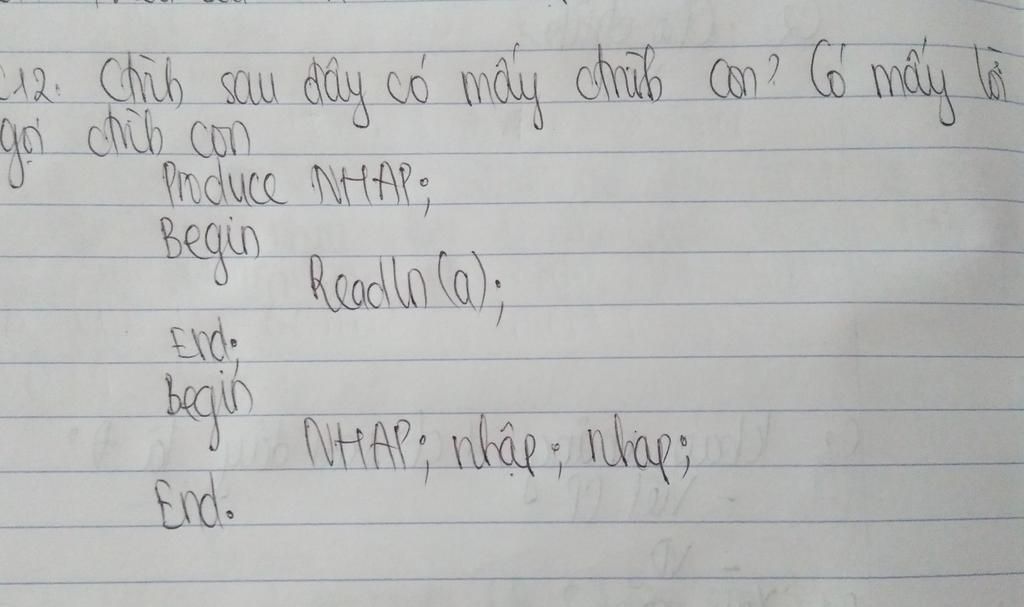 C12. Chtrình sau đây có mấy chtrình con? Có mấy lời
gọi chtrình con
Produce NHAP;
Begin
Readln(a);
End;
Begin
NHAP; nhập; nhap;
End.